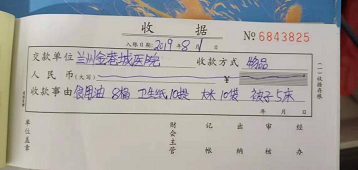 收 据
入账日期：2019年8月1日 №6843825
交款单位 兰州金港城医院 收款方式 物品
人民币（大写） ¥
收款事由 食用油 8桶 卫生纸10提 大米10袋 被子5床
年 月 日
单位盖章 财会主管 记账 出纳 审核 经办